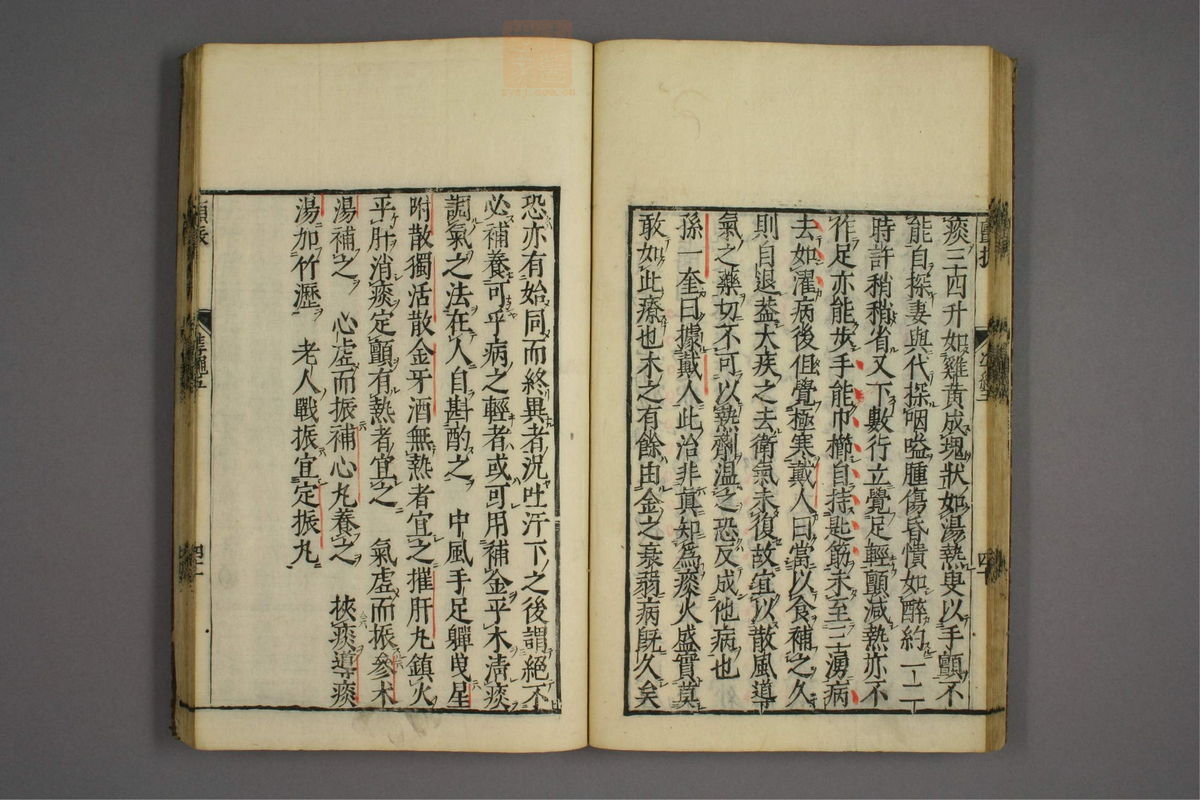 痰三四升如雞黃成塊狀如湯熱叓以手顫不
能自探妻與代探咽嗌腫傷昏憒如醉約一二
時許稍稍省又下數行立覺足輕顫減熱亦不
作足亦能步手能巾櫛自持匙筯未至三湧病
去如濯病後但覺極寒戴人曰當以食補之久
則自退盖大疾之去衛氣未復故宜以散風導
氣之藥切不可以熱劑溫之恐反成他病也
孫一奎曰據戴人此治非真知爲痰火盛實莫
敢如此療也木之有餘由金之衰弱病旣久矣
恐亦有始同而終異者況吐汗下之後謂絕不
必補養可乎病之輕者或可用補金乎木清痰
調氣之法在人自斟酌之 中風手足軃曳星
附散獨活散金牙酒無熱者宜之摧肝丸鎮火
平肝消痰定顫有熱者宜之 氣虛而振參朮
湯補之 心虛而振補心丸養之 挾痰導痰
湯加竹瀝 老人戰振宜定振丸